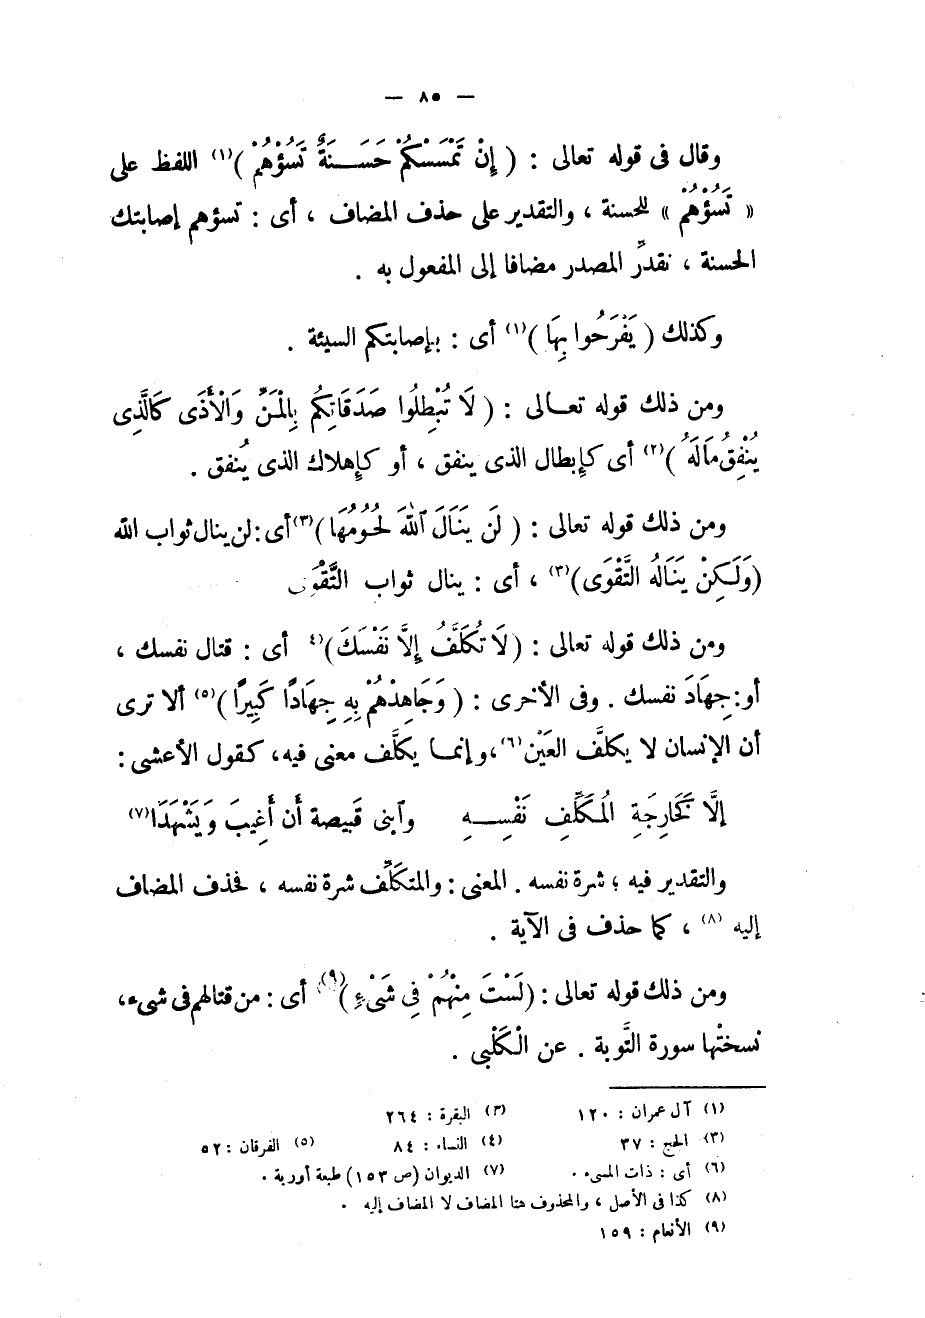 — ٨٥ —
وقال فى قوله تعالى : ( إِنْ تَمْسَسْكُمْ حَسَــنَةٌ تَسُؤْهُمْ )(١) اللفظ على
« تَسُؤْهُمْ » للحسنة ، والتقدير على حذف المضاف ، أى : تسؤهم إصابتك
الحسنة ، نقدرِّ المصدر مضافا إلى المفعول به .
وكذلك ( يَفْرَحُوا بِهَا )(١) أى : بإصابتكم السيئة .
ومن ذلك قوله تعـالى : ( لَا تُبْطِلُوا صَدَقَاتِكُم بِالْمَنِّ وَالْأَذَى كَالَّذِى
يُنْفِقُ مَالَهُ )(٢) أى كإبطال الذى ينفق ، أو كإهلاك الذى يُنفق .
ومن ذلك قوله تعالى : ( لَن يَنَالَ ٱللّٰهَ لُحُومُهَا )(٣) أى : لن ينال ثواب الله
(وَلَـكِنْ يَنَالُهُ التَّقْوَى)(٣) ، أى : ينال ثواب التَّقْوَى
ومن ذلك قوله تعالى : (لَا تُكَلَّفُ إِلَّا نَفْسَكَ)٤ أى : قتال نفسك ،
أو : جِهَادَ نفسك . وفى الأخرى : ( وَجَاهِدْهُمْ بِهِ جِهَادًا كَبِيرًا )(٥) ألا ترى
أن الإنسان لا يكلَّف العَيْن(٦)، وإنمـا يكلَّف معنى فيه، كقول الأعشى :
إِلَّا كَخَارِجَةِ الْمُكَلِّفِ نَفْسِـــهِ وٱبنى قَبِيصة أَن أَغِيبَ وَيَشْهَدَا(٧)
والتقدير فيه ؛ شرة نفسه . المعنى : والمتكَلِّف شرة نفسه ، فحذف المضاف
إليه (٨) ، كما حذف فى الآية .
ومن ذلك قوله تعالى : (لَسْتَ مِنْهُمْ فِي شَىْءٍ )(٩) أى : من قتالهم فى شىء،
نسختْها سورة التَّوبة . عن الْكَلْبى .
(١) آل عمران : ١٢٠ (٢) البقرة : ٢٦٤
(٣) الحج : ٣٧ (٤) النساء : ٨٤ (٥) الفرقان : ٥٢
(٦) أى : ذات المسىء . (٧) الديوان (ص ١٥٣) طبعة أوربة .
(٨) كذا فى الأصل ، والمحذوف هنا المضاف لا المضاف إليه .
(٩) الأنعام : ١٥٩